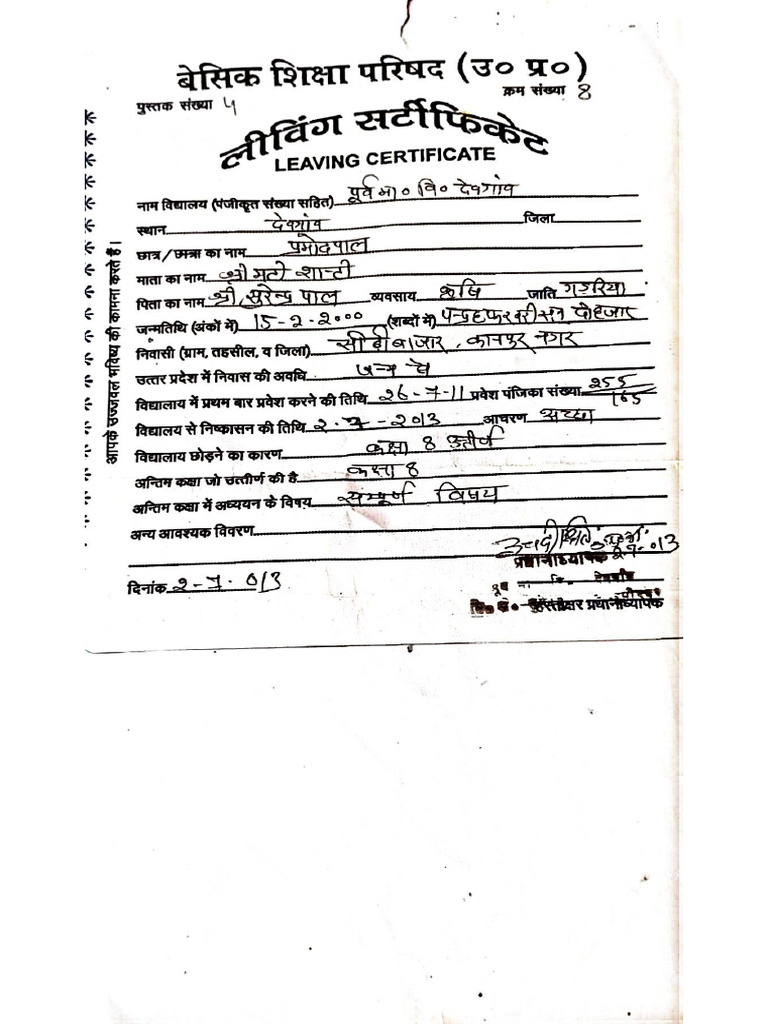 बेसिक शिक्षा परिषद (उ० प्र०)
पुस्तक संख्या 4 क्रम संख्या 8
लीविंग सर्टीफिकेट
LEAVING CERTIFICATE
नाम विद्यालय (पंजीकृत संख्या सहित) पूर्व मा० वि० देवगांव
स्थान देवगांव जिला
छात्र / छात्रा का नाम प्रमोदपाल
माता का नाम श्री मती शान्ती
पिता का नाम श्री सुरेन्द्र पाल व्यवसाय कृषि जाति गडरिया
जन्मतिथि (अंकों में) 15-2-2000 (शब्दों में) पन्द्रह फरवरी सन दोहजार
निवासी (ग्राम, तहसील, व जिला) बाजार, कानपुर नगर
उत्तर प्रदेश में निवास की अवधि जन्म से
विद्यालय में प्रथम बार प्रवेश करने की तिथि 26-7-11 प्रवेश पंजिका संख्या 255/165
विद्यालय से निष्कासन की तिथि 2-7-2013 आचरण अच्छा
विद्यालय छोड़ने का कारण कक्षा 8 उत्तीर्ण
अन्तिम कक्षा जो उत्तीर्ण की है कक्षा 8
अन्तिम कक्षा में अध्ययन के विषय सम्पूर्ण विषय
अन्य आवश्यक विवरण
प्रधानाध्यापक
दिनांक 2-7-013
हस्ताक्षर प्रधानाध्यापक
आपके उज्जवल भविष्य की कामना करते हैं।